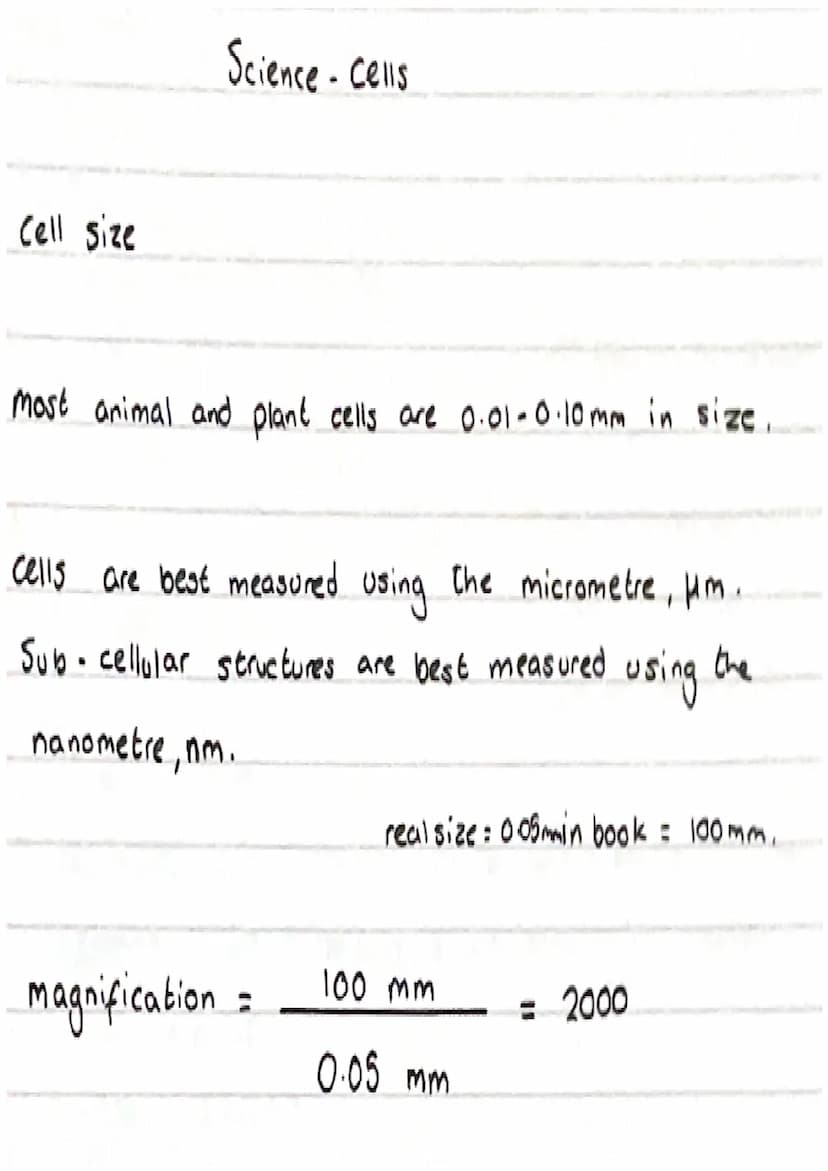 Science - Cells
Cell size
Most animal and plant cells are 0.01-0.10mm in size.
Cells are best measured using the micrometre, µm.
Sub-cellular structures are best measured using the
nanometre, nm.
real size: 0.05mm in book = 100mm.
100 mm
magnification = = 2000
0.05 mm